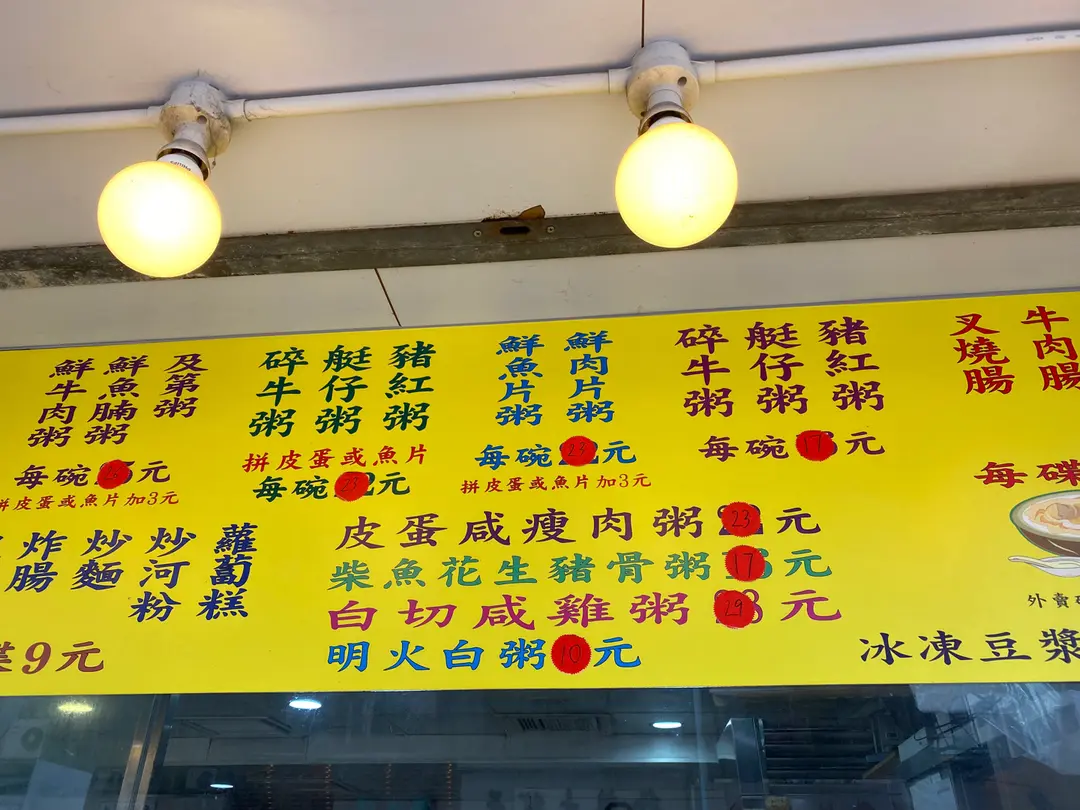 及第粥
鮮魚腩粥
鮮牛肉粥
每碗元
拼皮蛋或魚片加3元
豬紅粥
艇仔粥
碎牛粥
拼皮蛋或魚片
每碗23元
鮮肉片粥
鮮魚片粥
每碗23元
拼皮蛋或魚片加3元
豬紅粥
艇仔粥
碎牛粥
每碗17元
牛肉腸
叉燒腸
每碟
蘿蔔糕
炒河粉
炒麵
炸腸
9元
皮蛋咸瘦肉粥23元
柴魚花生豬骨粥17元
白切咸雞粥29元
明火白粥10元
外賣
冰凍豆漿